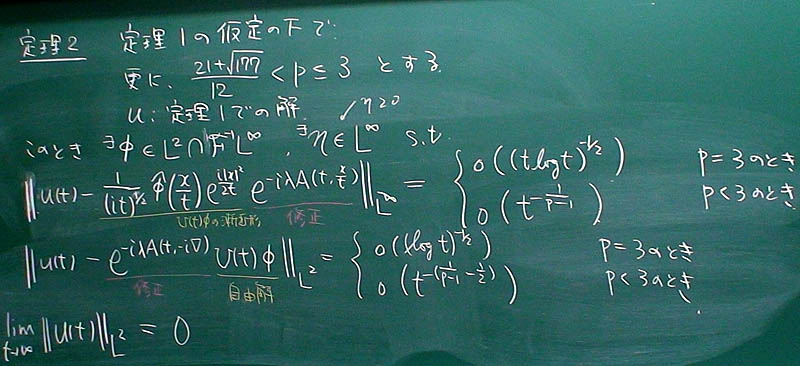 定理2 定理1の仮定の下で
更に、 \frac{21+\sqrt{177}}{12} < p ≤ 3 とする
u: 定理1での解. η≥0
このとき ∃φ ∈ L^2 ∩ F^{-1}L^∞, ∃η ∈ L^∞ s.t.
‖u(t) - \frac{1}{(it)^{1/2}} \hat{φ}(\frac{x}{t}) e^{\frac{i|x|^2}{2t}} e^{-iλA(t,\frac{x}{t})}‖_{L^∞} = { o((t log t)^{-1/2}) p=3のとき
o(t^{-\frac{1}{p-1}}) p<3のとき
U(t)φの漸近形 修正
‖u(t) - e^{-iλA(t,-i∇)} U(t)φ‖_{L^2} = { o(t log t)^{-1/2}) p=3のとき
o(t^{-(\frac{1}{p-1}-\frac{1}{2})}) p<3のとき、
修正 自由解
lim_{t→∞} ‖u(t)‖_{L^2} = 0